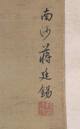 南沙蒋廷锡